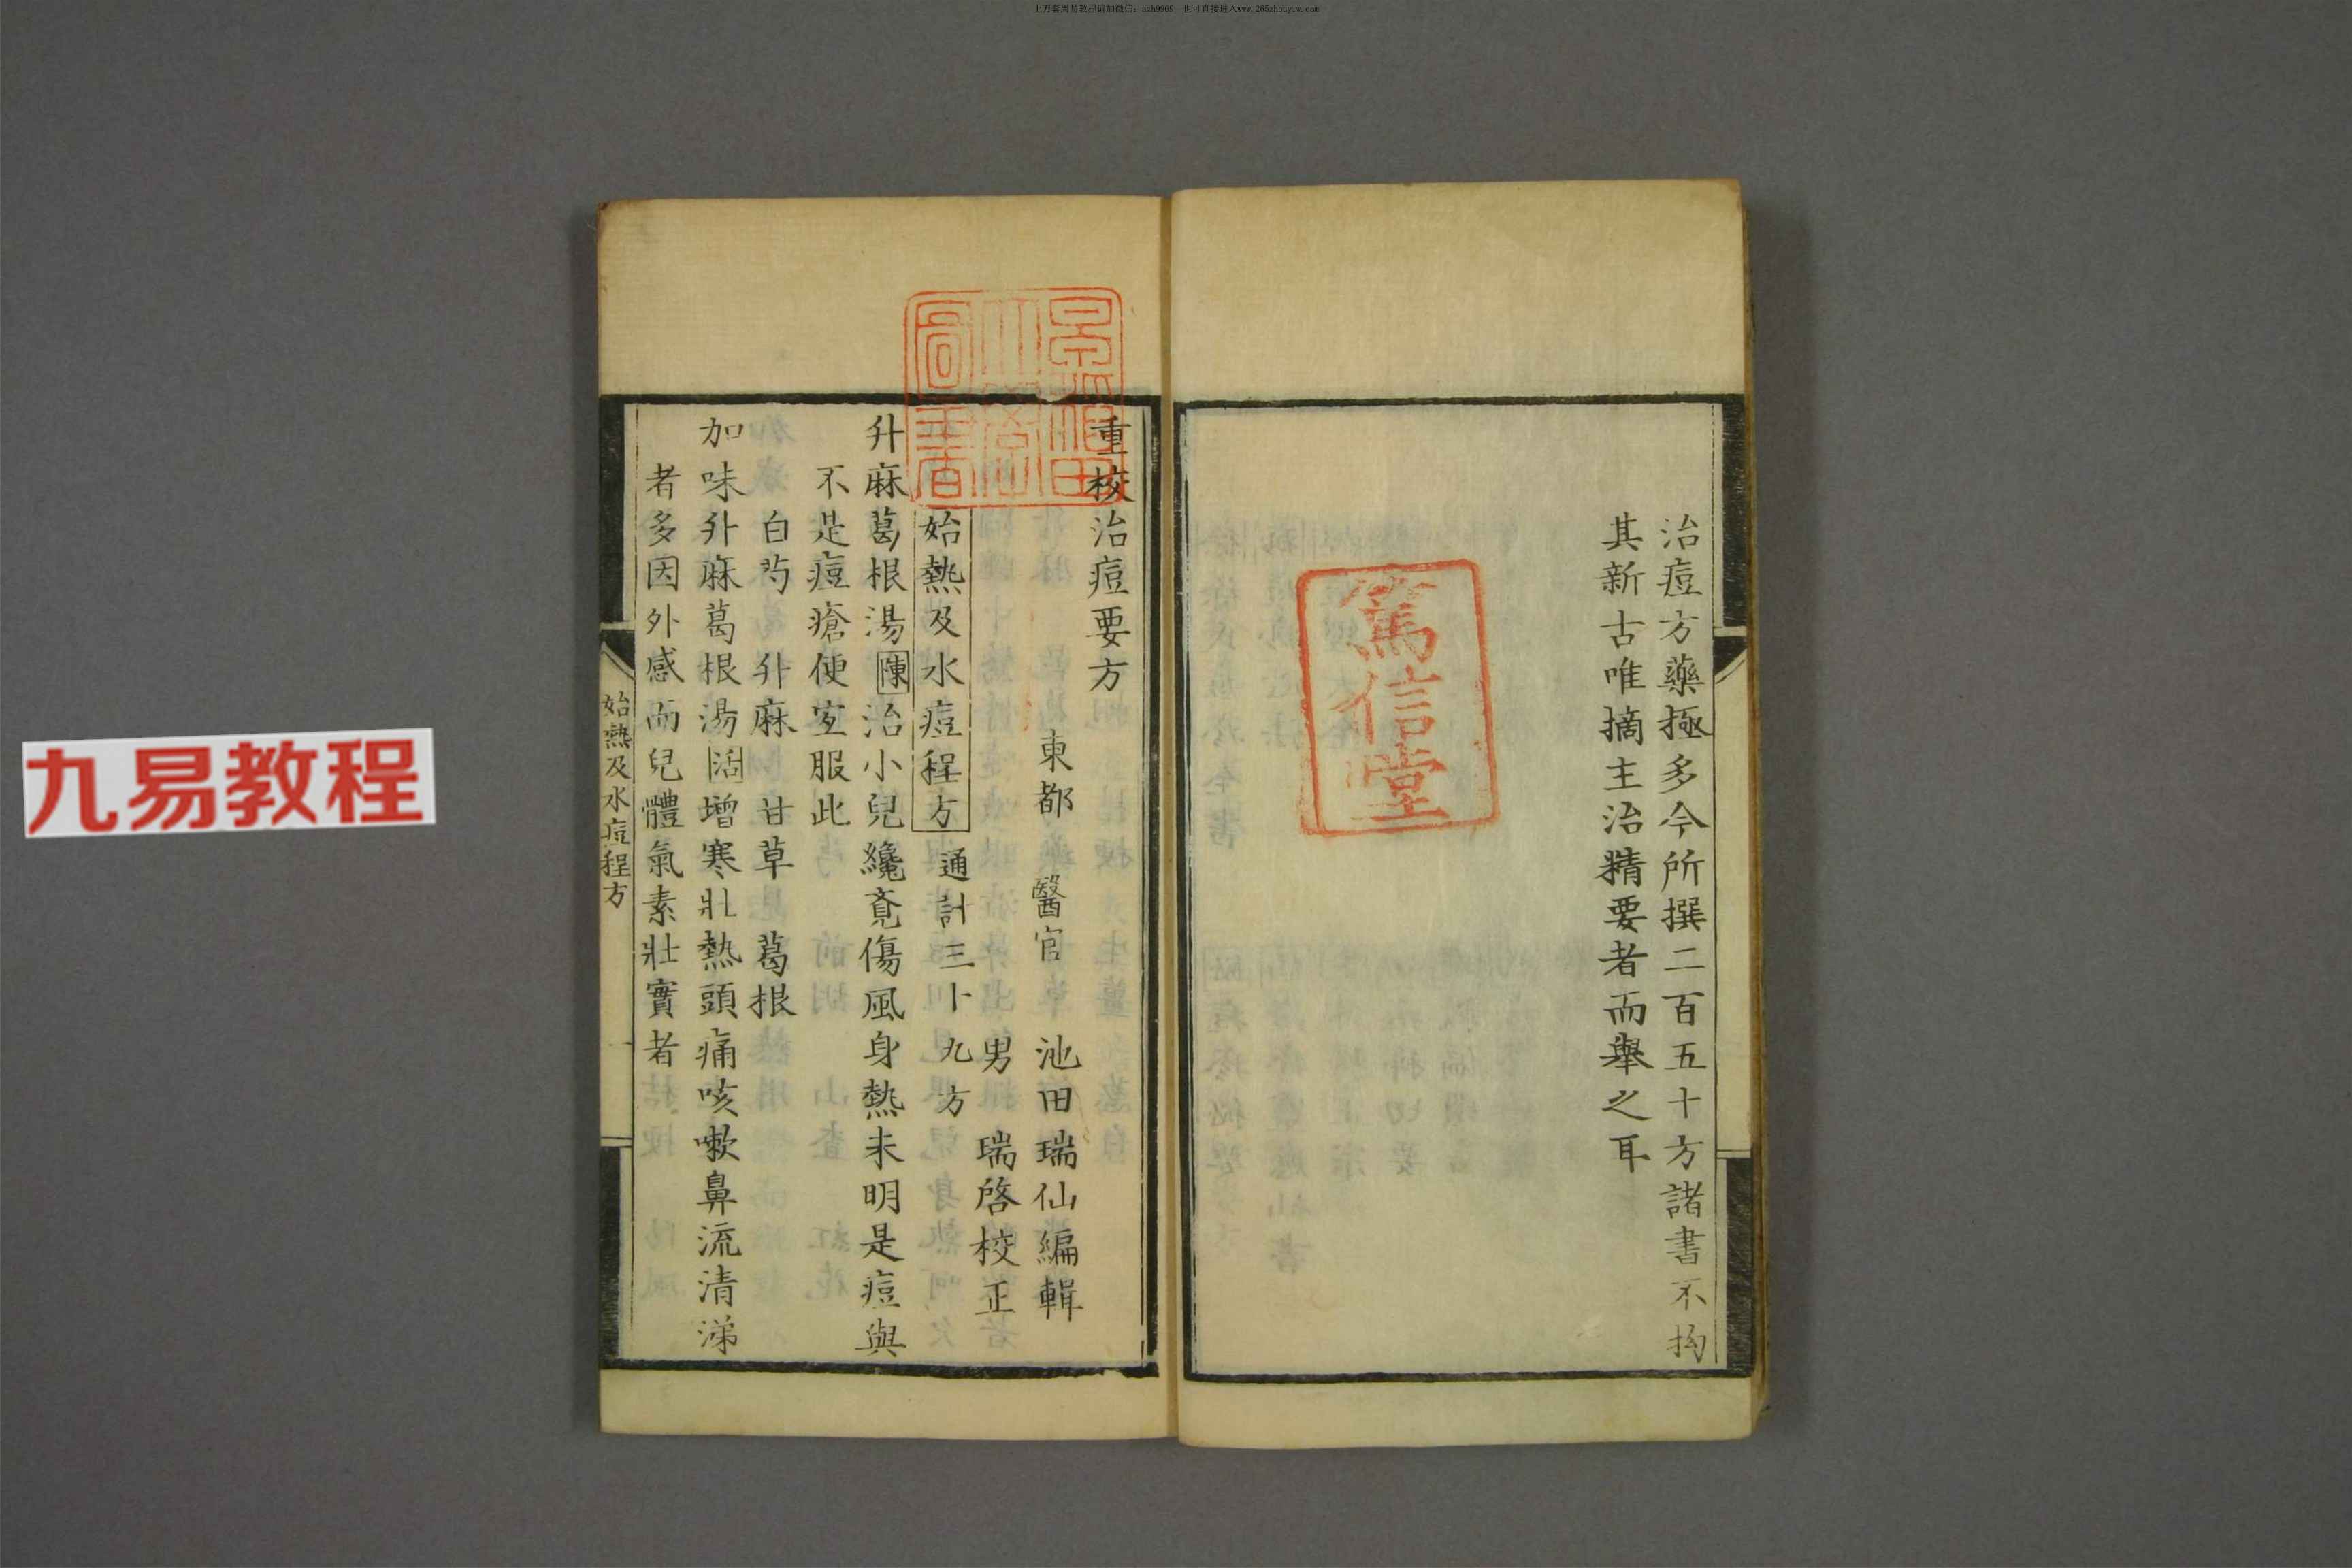 上万套周易教程请加微信：azh9969 也可直接进入www.265zhouyiw.com
治痘方藥極多今所撰二百五十方諸書不拘
其新古唯摘主治精要者而舉之耳
篤信堂
重校治痘要方
東都 醫官 池田瑞仙編輯
男 瑞啓校正
始熱及水痘程方 通計三十九方
升麻葛根湯 陳 治小兒纔竟傷風身熱未明是痘與
不是痘瘡便宜服此
白芍 升麻 甘草 葛根
加味升麻葛根湯 活 增寒壯熱頭痛咳嗽鼻流清涕
者多因外感而兒體氣素壯實者
始熱及水痘程方
九易教程